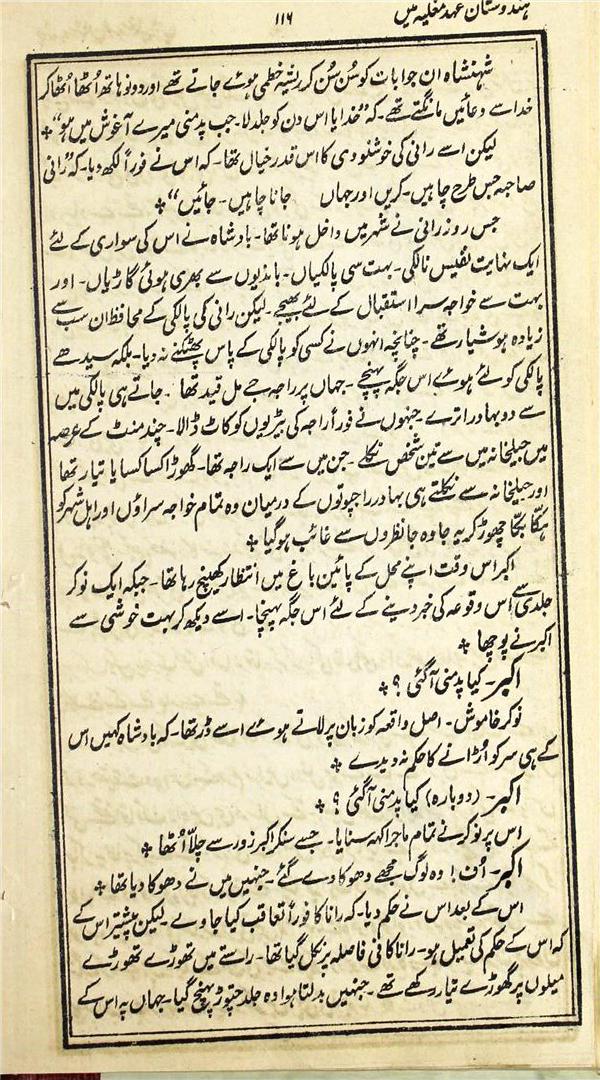 ہندوستان عہد مغلیہ میں
۱۱۶
شہنشاہ ان جوابات کو سُن سُن کر ریشہ خطمی ہوئے جاتے تھے اور دونو ہاتھ اُٹھا اُٹھا کر
خدا سے دعائیں مانگتے تھے۔ کہ "خدایا اس دن کو جلد لا۔ جب پدمنی میرے آغوش میں ہو" ٭
لیکن اسے رانی کی خوشنودی کا اس قدر خیال تھا۔ کہ اس نے فوراً لکھ دیا۔ کہ "رانی
صاحبہ جس طرح چاہیں۔ کریں اور جہاں جانا چاہیں۔ جائیں" ٭
جس روز رانی نے شہر میں داخل ہونا تھا۔ بادشاہ نے اس کی سواری کے لئے
ایک نہایت نفیس نالکی۔ بہت سی پالکیاں۔ باندیوں سے بھری ہوئی گاڑیاں۔ اور
بہت سے خواجہ سرا استقبال کے لئے بھیجے۔ لیکن رانی کی پالکی کے محافظ ان سب سے
زیادہ ہوشیار تھے۔ چنانچہ انہوں نے کسی کو پالکی کے پاس پھٹکنے نہ دیا۔ بلکہ سیدھے
پالکی کو لئے ہوئے اس جگہ پہنچے۔ جہاں پر راجہ جے مل قید تھا۔ جاتے ہی پالکی میں
سے دو بہادر اترے۔ جنہوں نے فوراً راجہ کی بیڑیوں کو کاٹ ڈالا۔ چند منٹ کے عرصہ
میں جیلخانہ میں سے تین شخص نکلے۔ جن میں سے ایک راجہ تھا۔ گھوڑا کسا کسایا تیار تھا
اور جیلخانہ سے نکلتے ہی بہادر راجپوتوں کے درمیان وہ تمام خواجہ سراؤں اور اہل شہر کو
ہکّا بکّا چھوڑ کر یہ جا وہ جا نظروں سے غائب ہو گیا ٭
اکبر اس وقت اپنے محل کے پائین باغ میں انتظار کھینچ رہا تھا۔ جبکہ ایک نوکر
جلدی سے اس وقوعہ کی خبر دینے کے لئے اس جگہ پہنچا۔ اسے دیکھ کر بہت خوشی سے
اکبر نے پوچھا ٭
اکبر۔ کیا پدمنی آ گئی ؟ ٭
نوکر خاموش۔ اصل واقعہ کو زبان پر لاتے ہوئے اسے ڈر تھا۔ کہ بادشاہ کہیں اس
کے ہی سر کو اُڑانے کا حکم نہ دیدے ٭
اکبر۔ (دوبارہ) کیا پدمنی آ گئی ؟ ٭
اس پر نوکر نے تمام ماجرا کہہ سنایا۔ جسے سنکر اکبر زور سے چلّا اُٹھا ٭
اکبر۔ اُف! وہ لوگ مجھے دھوکا دے گئے۔ جنہیں میں نے دھوکا دیا تھا ٭
اس کے بعد اس نے حکم دیا۔ کہ رانا کا فوراً تعاقب کیا جاوے۔ لیکن پیشتر اس کے
کہ اس کے حکم کی تعمیل ہو۔ رانا کافی فاصلہ پر نکل گیا تھا۔ راستے میں تھوڑے تھوڑے
میلوں پر گھوڑے تیار رکھے تھے۔ جنہیں بدلتا ہوا وہ جلد چتوڑ پہنچ گیا۔ جہاں پہ اس کے